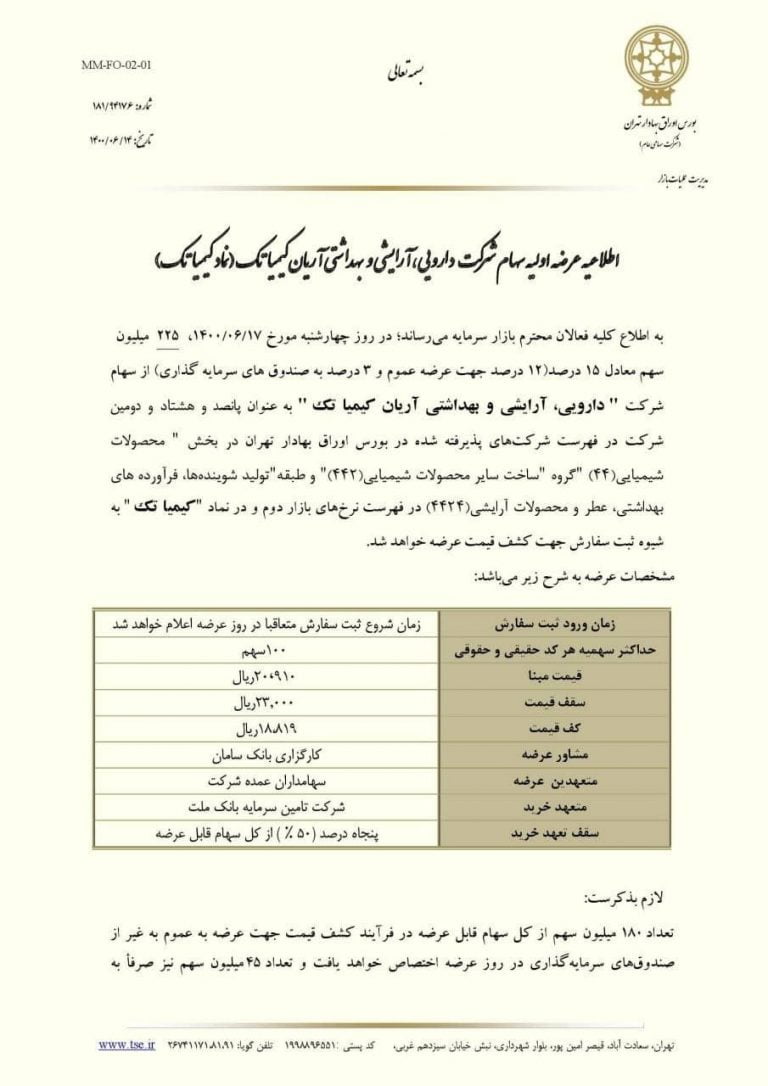 بورس اوراق بهادار تهران
(شرکت سهامی عام)
مدیریت عملیات بازار
بسمه تعالی
MM-FO-02-01
شماره: ۱۸۱/۹۴۱۷۶
تاریخ: ۱۴۰۰/۰۶/۱۴
اطلاعیه عرضه اولیه سهام شرکت دارویی، آرایشی و بهداشتی آریان کیمیا تک (نماد کیمیا تک)
به اطلاع کلیه فعالان محترم بازار سرمایه می‌رساند؛ در روز چهارشنبه مورخ ۱۴۰۰/۰۶/۱۷، ۲۲۵ میلیون
سهم معادل ۱۵ درصد(۱۲ درصد جهت عرضه عموم و ۳ درصد به صندوق های سرمایه گذاری) از سهام
شرکت " دارویی، آرایشی و بهداشتی آریان کیمیا تک " به عنوان پانصد و هشتاد و دومین
شرکت در فهرست شرکت‌های پذیرفته شده در بورس اوراق بهادار تهران در بخش " محصولات
شیمیایی(۴۴) "گروه "ساخت سایر محصولات شیمیایی(۴۴۲)" و طبقه"تولید شوینده‌ها، فرآورده های
بهداشتی، عطر و محصولات آرایشی(۴۴۲۴) در فهرست نرخ‌های بازار دوم و در نماد "کیمیا تک " به
شیوه ثبت سفارش جهت کشف قیمت عرضه خواهد شد.
مشخصات عرضه به شرح زیر می‌باشد:
زمان ورود ثبت سفارش زمان شروع ثبت سفارش متعاقبا در روز عرضه اعلام خواهد شد
حداکثر سهمیه هر کد حقیقی و حقوقی ۱۰۰سهم
قیمت مبنا ۲۰،۹۱۰ریال
سقف قیمت ۲۳,۰۰۰ریال
کف قیمت ۱۸،۸۱۹ریال
مشاور عرضه کارگزاری بانک سامان
متعهدین عرضه سهامداران عمده شرکت
متعهد خرید شرکت تامین سرمایه بانک ملت
سقف تعهد خرید پنجاه درصد (۵۰ ٪ ) از کل سهام قابل عرضه
لازم بذکرست:
تعداد ۱۸۰ میلیون سهم از کل سهام قابل عرضه در فرآیند کشف قیمت جهت عرضه به عموم به غیر از
صندوق‌های سرمایه‌گذاری در روز عرضه اختصاص خواهد یافت و تعداد ۴۵میلیون سهم نیز صرفأ به
تهران، سعادت آباد، قیصر امین پور، بلوار شهرداری، نبش خیابان سیزدهم غربی، کد پستی :۱۹۹۸۸۹۶۵۵۱ تلفن گویا: ۲۶۷۴۱۱۷۱،۸۱،۹۱ www.tse.ir